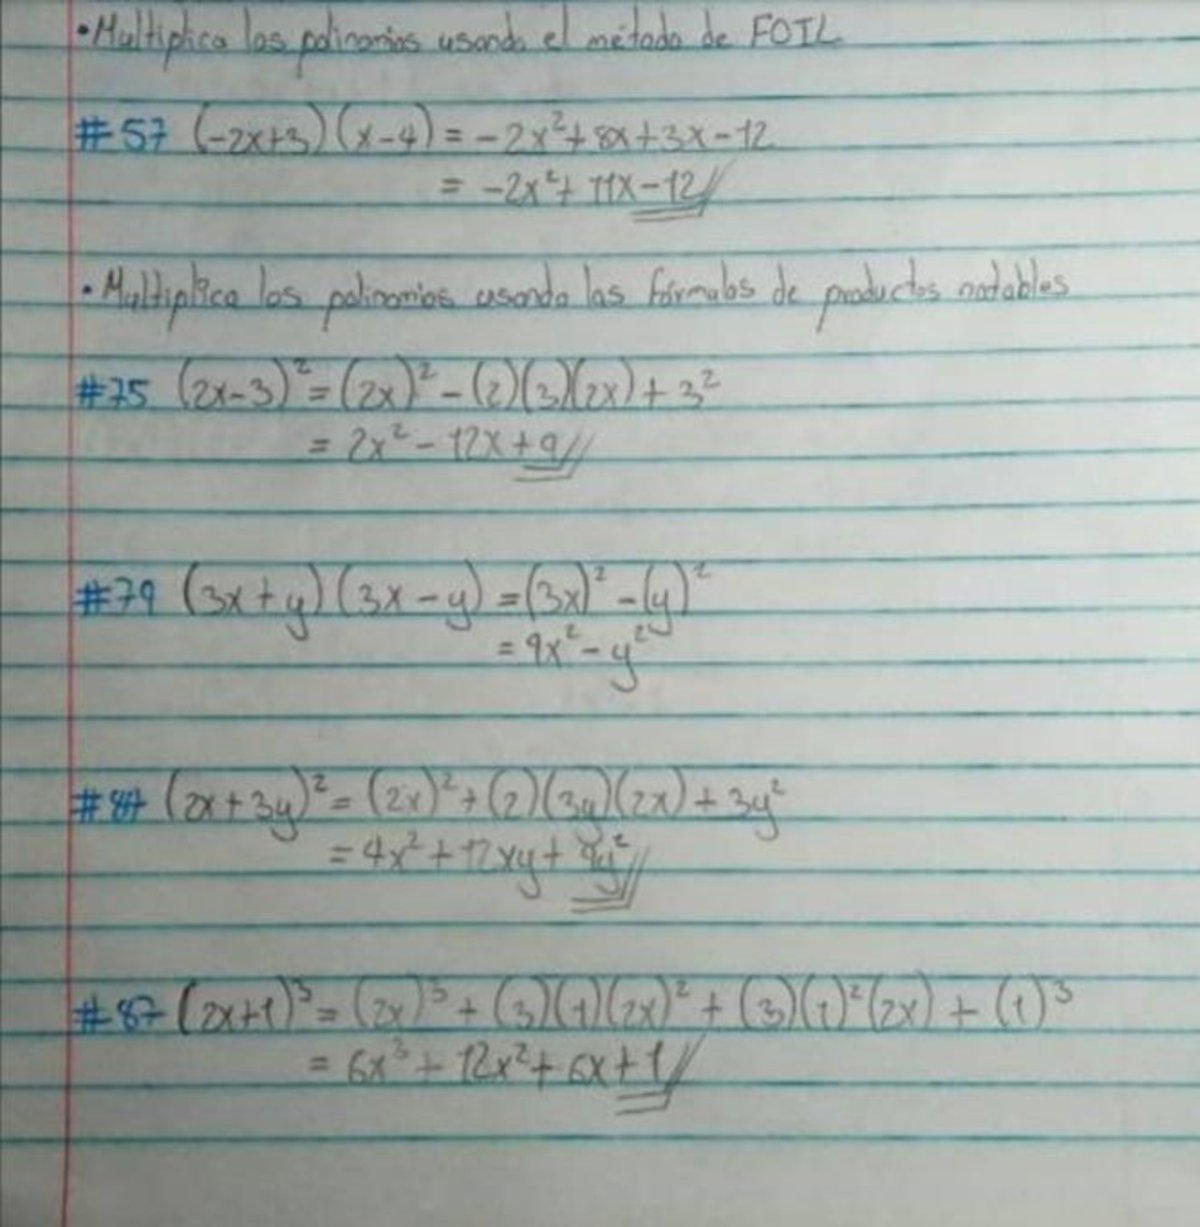 • Multiplica los polinomios usando el método de FOIL
#57 (-2x+3)(x-4) = -2x²+8x+3x-12
= -2x²+11x-12//
• Multiplica los polinomios usando las fórmulas de productos notables
#75 (2x-3)² = (2x)² - (2)(3)(2x) + 3²
= 2x² - 12x + 9//
#79 (3x+y)(3x-y) = (3x)² - (y)²
= 9x² - y²
(2x+3y)² = (2x)² + (2)(3y)(2x) + 3y²
= 4x² + 12xy + 9y²//
#87 (2x+1)³ = (2x)³ + (3)(1)(2x)² + (3)(1)²(2x) + (1)³
= 6x³ + 12x² + 6x + 1//